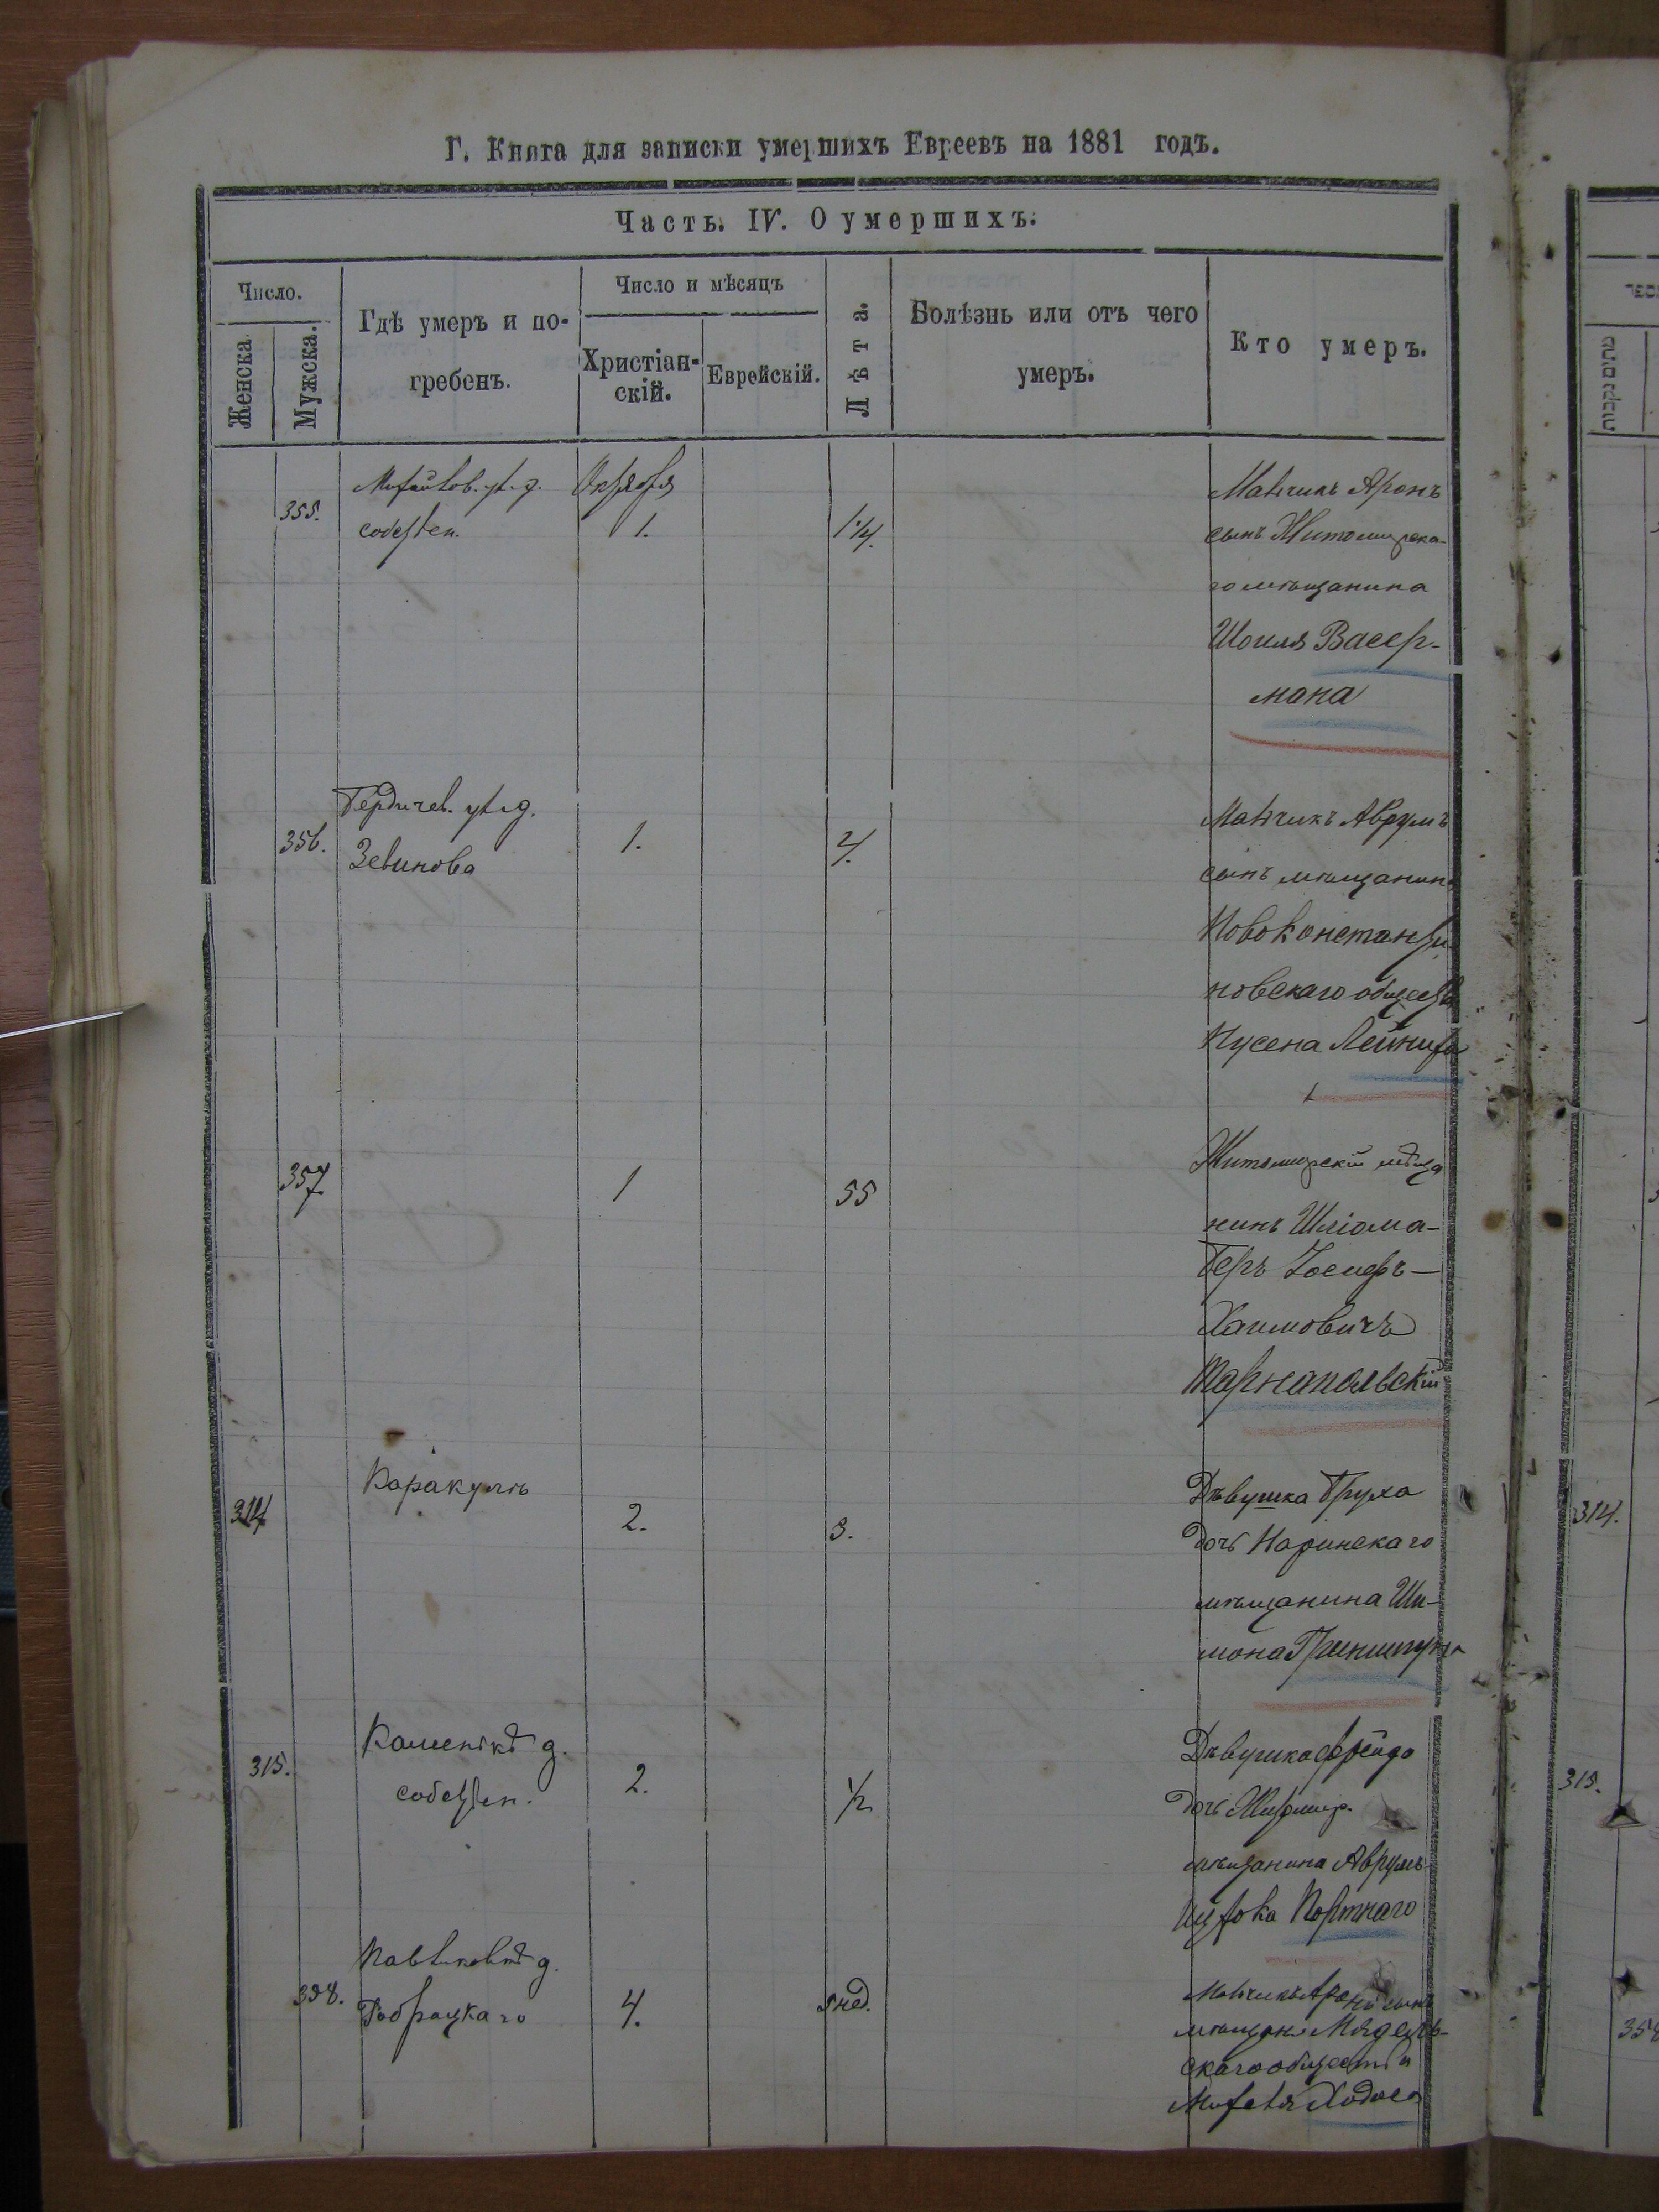 Г. Книга для записки умершихъ Евреевъ на 1881 годъ.
Часть. IV. О умершихъ.
Число.
Женска
Мужска.
Гдѣ умеръ и по-
гребенъ.
Число и мѣсяцъ
Христіан-
скій.
Еврейскій.
Лѣта.
Болѣзнь или отъ чего
умеръ.
Кто умеръ.
355.
собствен.
Октября
1.
1 1/4.
Мальчикъ Аронъ
сынъ Житомирска-
го мѣщанина
Шоиля Васер-
мана
356.
Бердичев. ул. д.
Зевинова
1.
4.
Мальчикъ Аврумъ
сынъ мѣщанина
Новоконстанти
новскаго обществ
Нусена
357.
1
55
Житомирскій мѣща
нинъ Шліома-
Беръ Іосифъ-
Хаимовичъ
Тарнапольскій
314
Каракулъ
2.
3.
Дѣвушка Бруха
дочь Наринскаго
мѣщанина Ши-
мона Гриншпуна
315.
д.
собствен.
2.
1/2
Дѣвушка Фрейда
дочь Житомир.
мѣщанина Аврумъ
Портнаго
358.
д.
4.
5 нед.
Мальчикъ Аронъ сынъ
скаго обществ
Ходоса
314.
315.